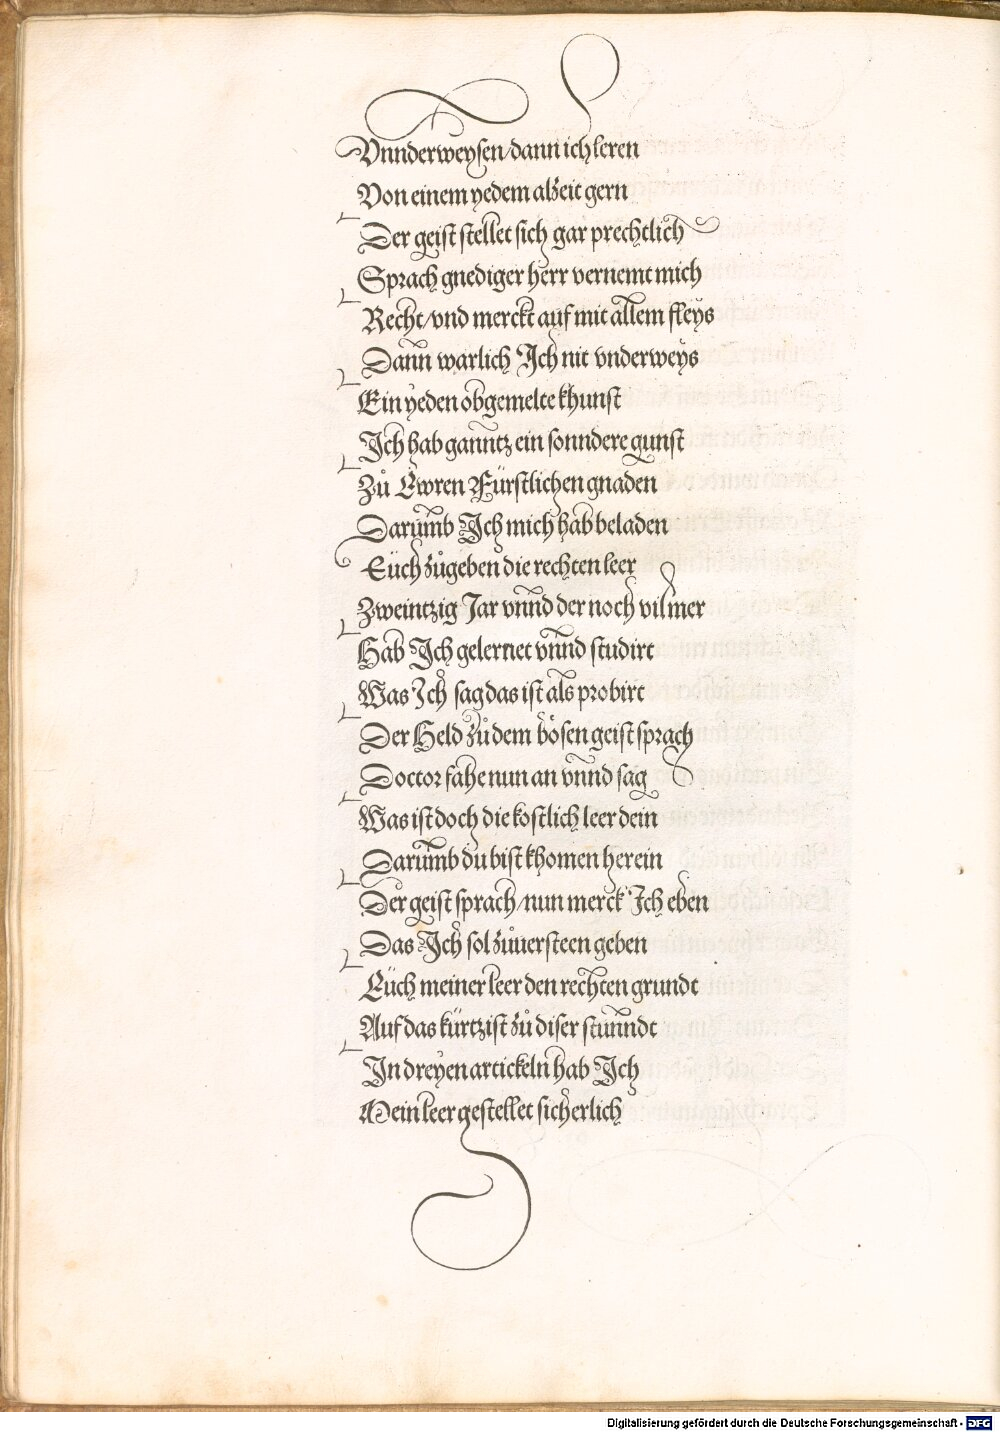 Vnnderweysen/dann ich leren
Von einem yedem alzeit gern
Der geist stellet sich gar prechtlich
Sprach gnediger herr vernemt mich
Recht/vnd merckt auf mit allem fleys
Dann warlich Ich nit vnderweys
Ein yeden obgemelte khunst
Ich hab ganntz ein sonndere gunst
Zů Ewren Fürstlichen gnaden
Darumb Ich mich hab beladen
Euch zůgeben die rechten leer
Zweintzig Jar vnnd der noch vil mer
Hab Ich gelernet vnnd studirt
Was Ich sag das ist als probirt
Der Held zů dem bösen geist sprach
Doctor fahe nun an vnnd sag
Was ist doch die kostlich leer dein
Darumb du bist khomen herein
Der geist sprach/nun merck Ich eben
Das Ich sol zůuersteen geben
Euch meiner leer den rechten grundt
Auf das kürtzist zů diser stunndt
In dreyen artickeln hab Ich
Mein leer gestellet sicherlich
Digitalisierung gefördert durch die Deutsche Forschungsgemeinschaft - DFG